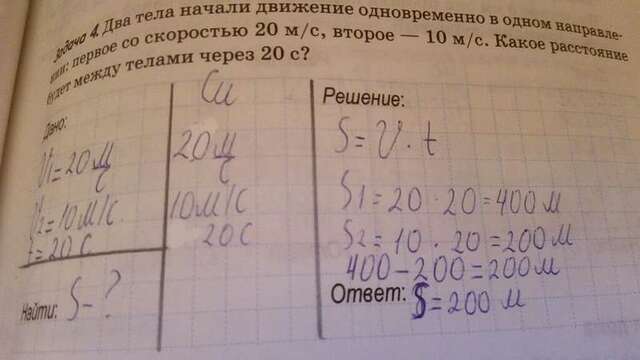 Задача 4. Два тела начали движение одновременно в одном направле-
нии: первое со скоростью 20 м/с, второе — 10 м/с. Какое расстояние
будет между телами через 20 с?
Дано:
V1 = 20 м/с
V2 = 10 м/с
t = 20 с
Найти: S - ?
Си
20 м/с
10 м/с
20 с
Решение:
S = V · t
S1 = 20 · 20 = 400 м
S2 = 10 · 20 = 200 м
400 - 200 = 200 м
Ответ: S = 200 м